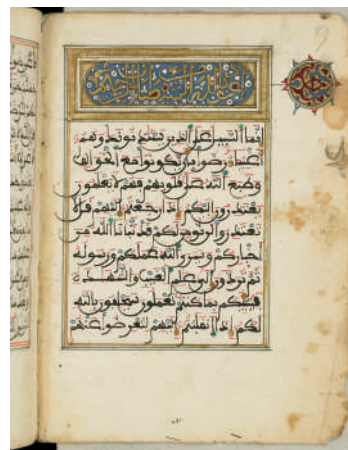 أعوذ بالله من الشيطان الرجيم
إنما السبيل على الذين يستذنونك وهم
أغنياء رضوا بأن يكونوا مع الخوالف
وطبع الله على قلوبهم فهم لا يعلمون
يعتذرون إليكم إذا رجعتم إليهم قل لا
تعتذروا لن نومن لكم قد نبأنا الله من
أخباركم وسيرى الله عملكم ورسوله
ثم تردون إلى علم الغيب والشهدة
فينبئكم بما كنتم تعملون سيحلفون بالله
لكم إذا انقلبتم إليهم لتعرضوا عنهم